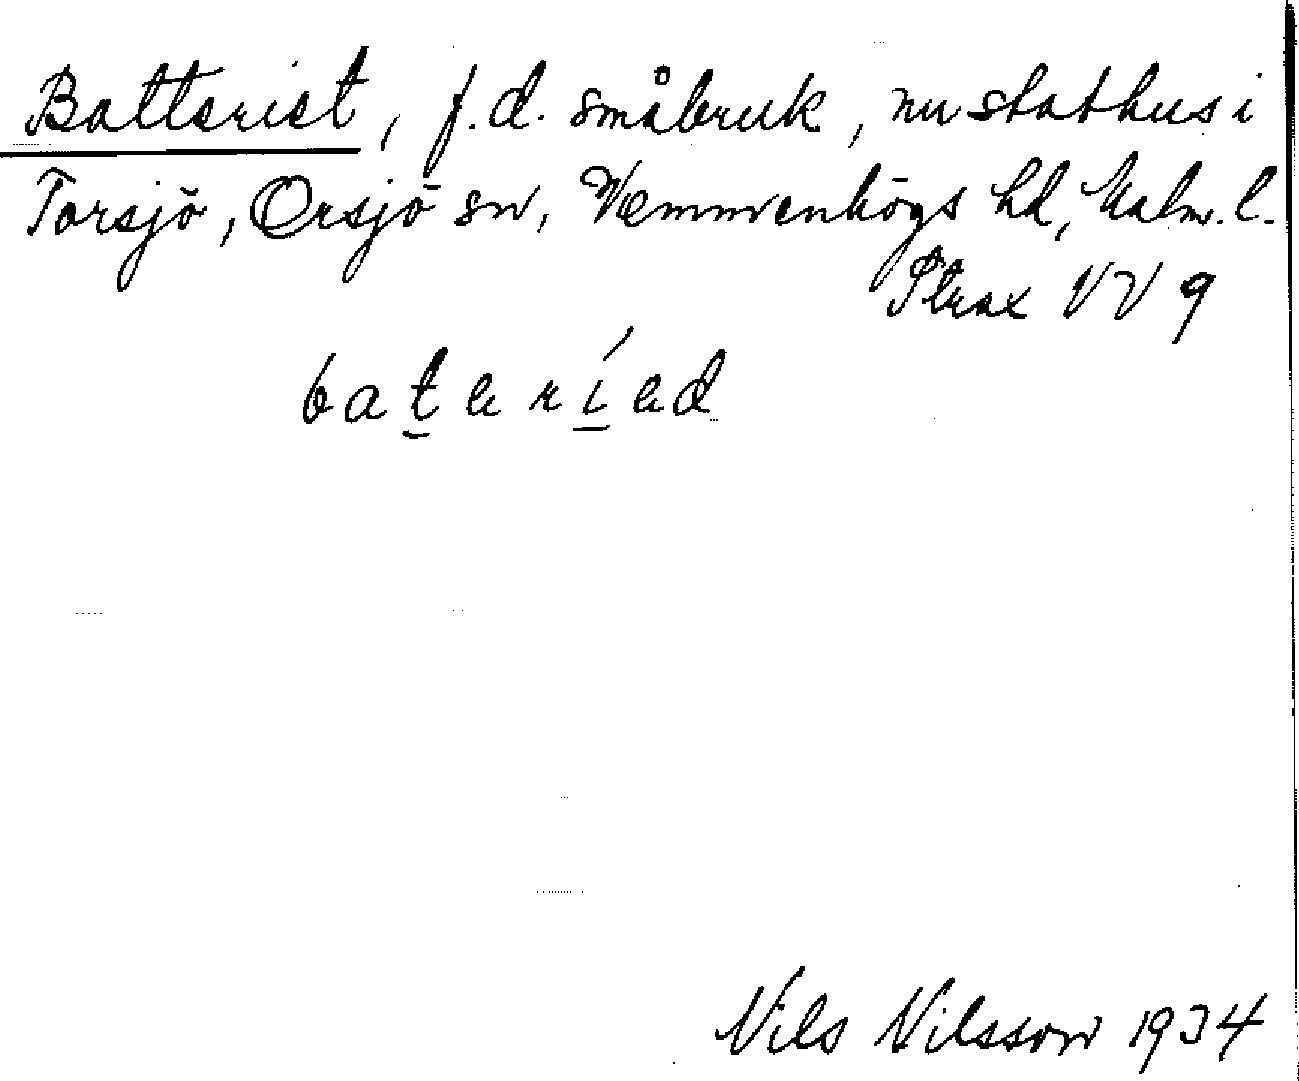 Batteriet, f.d. småbruk, nu stathus i
Torsjö, Örsjö sn, Vemmenhögs hd, Malm. l.
Strax VV 9
bateríed
Nils Nilsson 1934